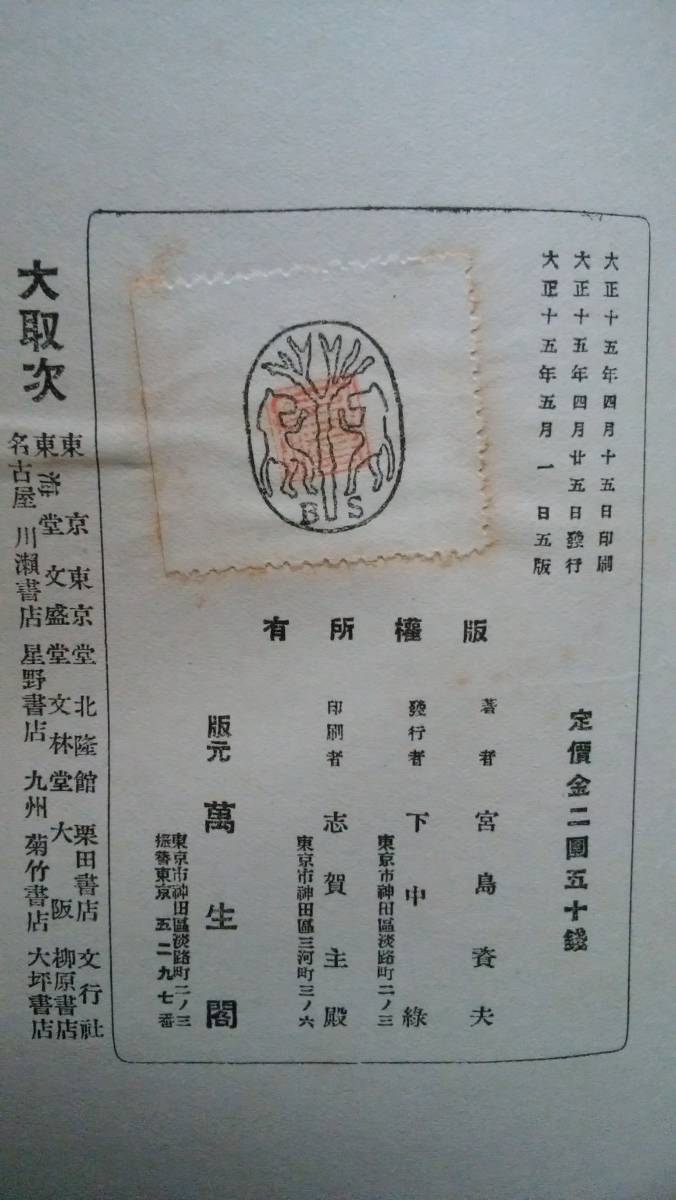 大正十五年四月十五日印刷
大正十五年四月廿五日發行
大正十五年五月一日五版
BS
版權所有
定價金二圓五十錢
著者 宮島資夫
發行者 下中綠
東京市神田區淡路町二ノ三
印刷者 志賀主殿
東京市神田區三河町三ノ六
版元 萬生閣
東京市神田區淡路町二ノ三
振替東京五二九七番
大取次
東京 東京堂 北隆館 栗田書店 文行社
東海堂 文盛堂 文林堂 大阪 柳原書店
名古屋 川瀨書店 星野書店 九州 菊竹書店 大坪書店